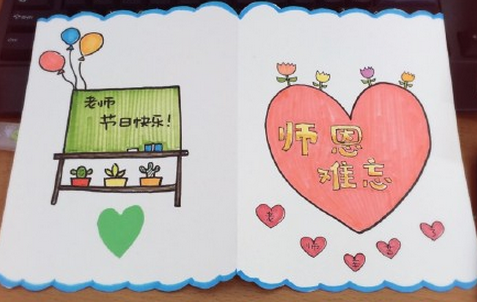 老师
节日快乐!
师恩
难忘
老
师